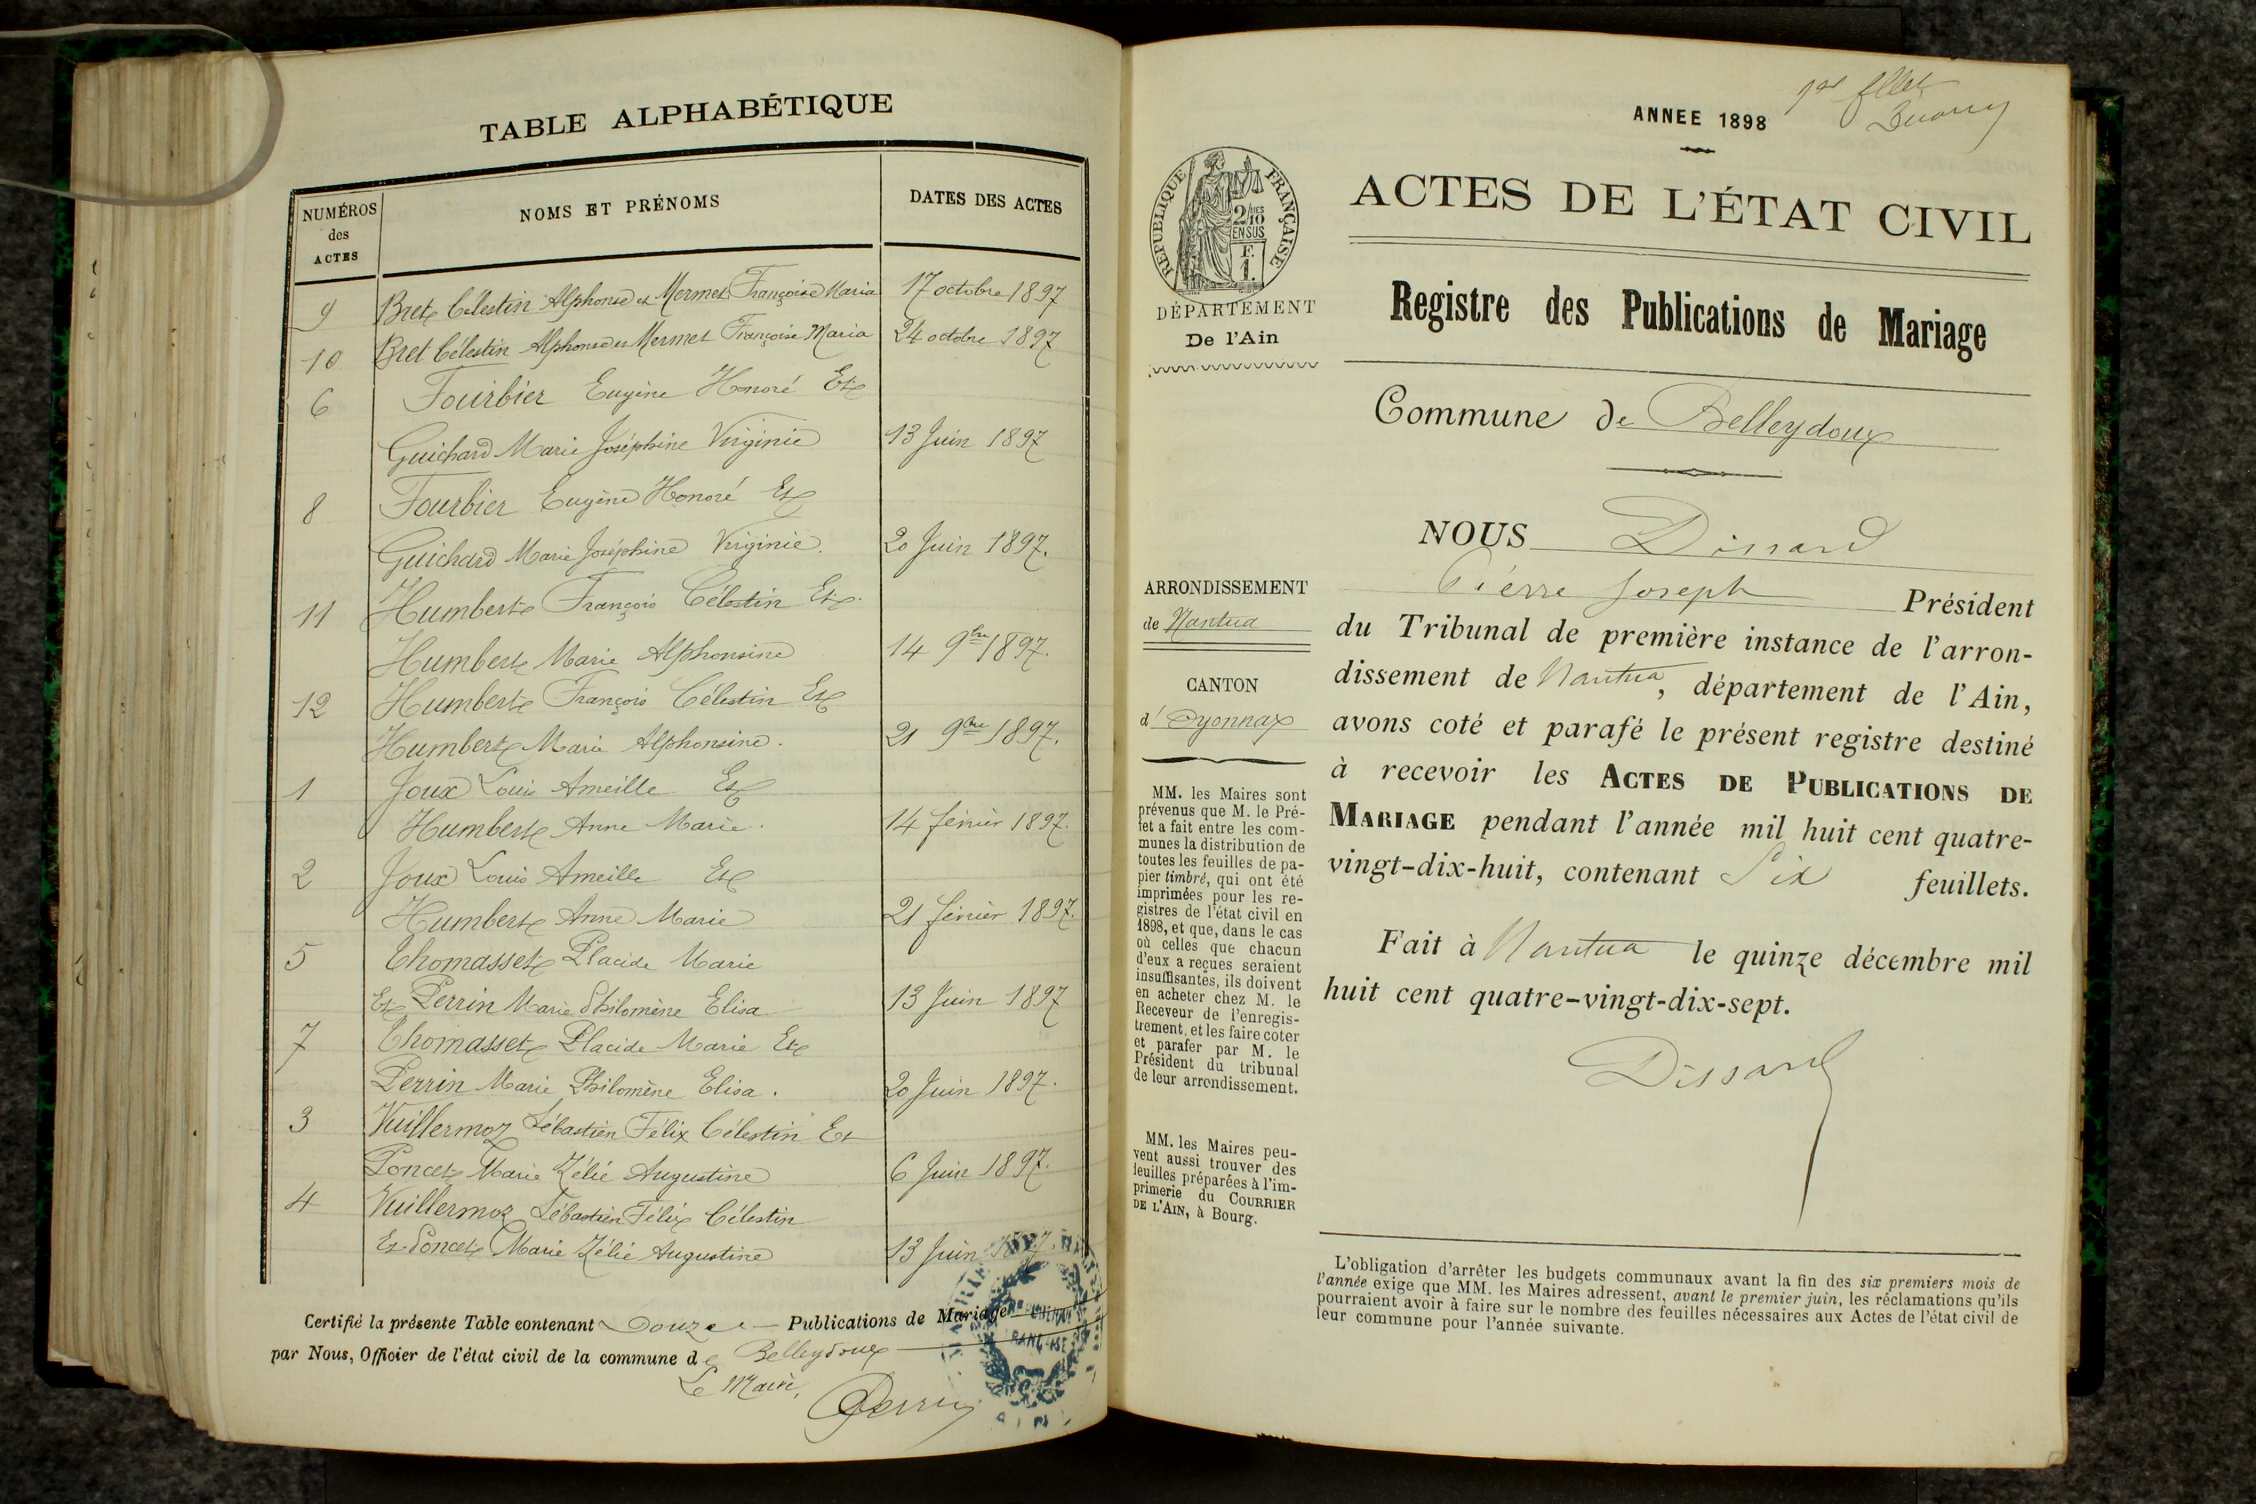 TABLE ALPHABÉTIQUE
NUMÉROS des ACTES
NOMS ET PRÉNOMS
DATES DES ACTES
9 Bret Célestin Alphonse et Mermet Françoise Maria 17 octobre 1897
10 Bret Célestin Alphonse et Mermet Françoise Maria 24 octobre 1897
6 Fourbier Eugène Honoré Et
Guichard Marie Joséphine Virginie 13 Juin 1897
8 Fourbier Eugène Honoré Et
Guichard Marie Joséphine Virginie. 20 Juin 1897.
11 Humbert François Célestin Et
Humbert Marie Alphonsine 14 9bre 1897.
12 Humbert François Célestin Et
Humbert Marie Alphonsine. 21 9bre 1897.
1 Joux Louis Ameille Et
Humbert Anne Marie. 14 février 1897.
2 Joux Louis Ameille Et
Humbert Anne Marie 21 février 1897.
5 Thomasset Placide Marie
Et Perrin Marie Philomène Elisa 13 Juin 1897
7 Thomasset Placide Marie Et
Perrin Marie Philomène Elisa. 20 Juin 1897.
3 Vuillermoz Sébastien Félix Célestin Et
Poncet Marie Zélie Augustine 6 Juin 1897.
4 Vuillermoz Sébastien Félix Célestin
Et Poncet Marie Zélie Augustine 13 Juin 1897.
Certifié la présente Table contenant Douze Publications de Mariage
par Nous, Officier de l'état civil de la commune de Belleydoux
Le Maire,
Perrin
ANNEE 1898
1er fllet
ACTES DE L'ÉTAT CIVIL
RÉPUBLIQUE FRANÇAISE
2/10 EN SUS
F. 1.
DÉPARTEMENT
De l'Ain
Registre des Publications de Mariage
Commune de Belleydoux
NOUS Dissard
Pierre Joseph Président
du Tribunal de première instance de l'arron-
dissement de Nantua, département de l'Ain,
avons coté et parafé le présent registre destiné
à recevoir les ACTES DE PUBLICATIONS DE
MARIAGE pendant l'année mil huit cent quatre-
vingt-dix-huit, contenant Six feuillets.
Fait à Nantua le quinze décembre mil
huit cent quatre-vingt-dix-sept.
Dissard
ARRONDISSEMENT
de Nantua
CANTON
d'Oyonnax
MM. les Maires sont
prévenus que M. le Pré-
fet a fait entre les com-
munes la distribution de
toutes les feuilles de pa-
pier timbré, qui ont été
imprimées pour les re-
gistres de l'état civil en
1898, et que, dans le cas
où celles que chacun
d'eux a reçues seraient
insuffisantes, ils doivent
en acheter chez M. le
Receveur de l'enregis-
trement, et les faire coter
et parafer par M. le
Président du tribunal
de leur arrondissement.
MM. les Maires peu-
vent aussi trouver des
feuilles préparées à l'im-
primerie du COURRIER
DE L'AIN, à Bourg.
L'obligation d'arrêter les budgets communaux avant la fin des six premiers mois de
l'année exige que MM. les Maires adressent, avant le premier juin, les réclamations qu'ils
pourraient avoir à faire sur le nombre des feuilles nécessaires aux Actes de l'état civil de
leur commune pour l'année suivante.